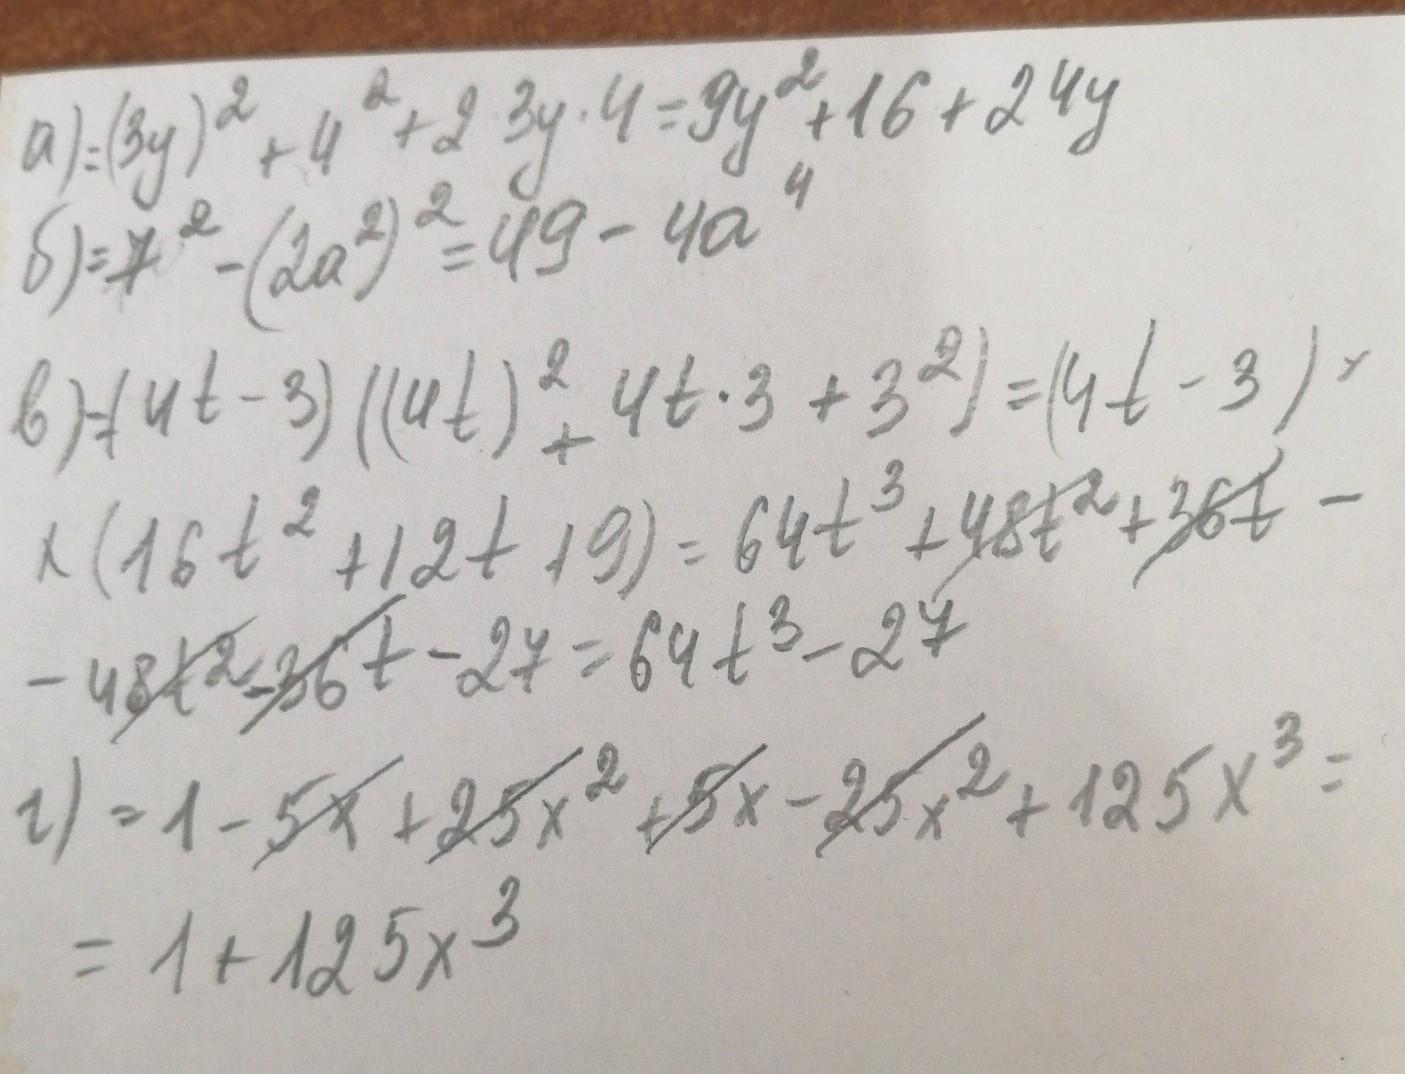 а)=(3y)²+4²+2·3y·4=9y²+16+24y
б)=7²-(2a²)²=49-4a⁴
в)=(4t-3)((4t)²+4t·3+3²)=(4t-3)×
×(16t²+12t+9)=64t³+48t²+36t-
-48t²-36t-27=64t³-27
г)=1-5x+25x²+5x-25x²+125x³=
=1+125x³